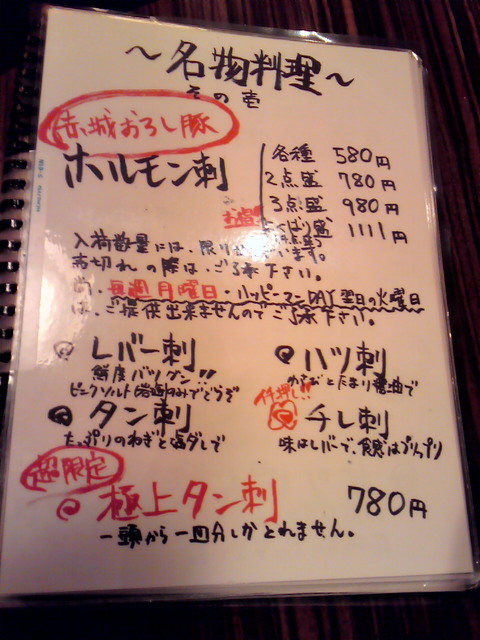 ～名物料理～
その壱
赤城おろし豚
ホルモン刺
各種 580円
2点盛 780円
3点盛 980円
お得 よくばり盛 1111円
入荷数量には、限りがございます。
売切れの際は、ご了承下さい。
尚、毎週月曜日・ハッピーマンDAY翌日の火曜日
は、ご提供出来ませんのでご了承下さい。
レバー刺
鮮度バツグン!!
ピンクソルト(岩塩)のみでどうぞ
ハツ刺
わさびとたまり醤油で
タン刺
たっぷりのねぎと塩ダレで
イチ押し!!
チレ刺
味はレバーで、食感はプリップリ
超限定
極上タン刺 780円
一頭から一皿分しかとれません。